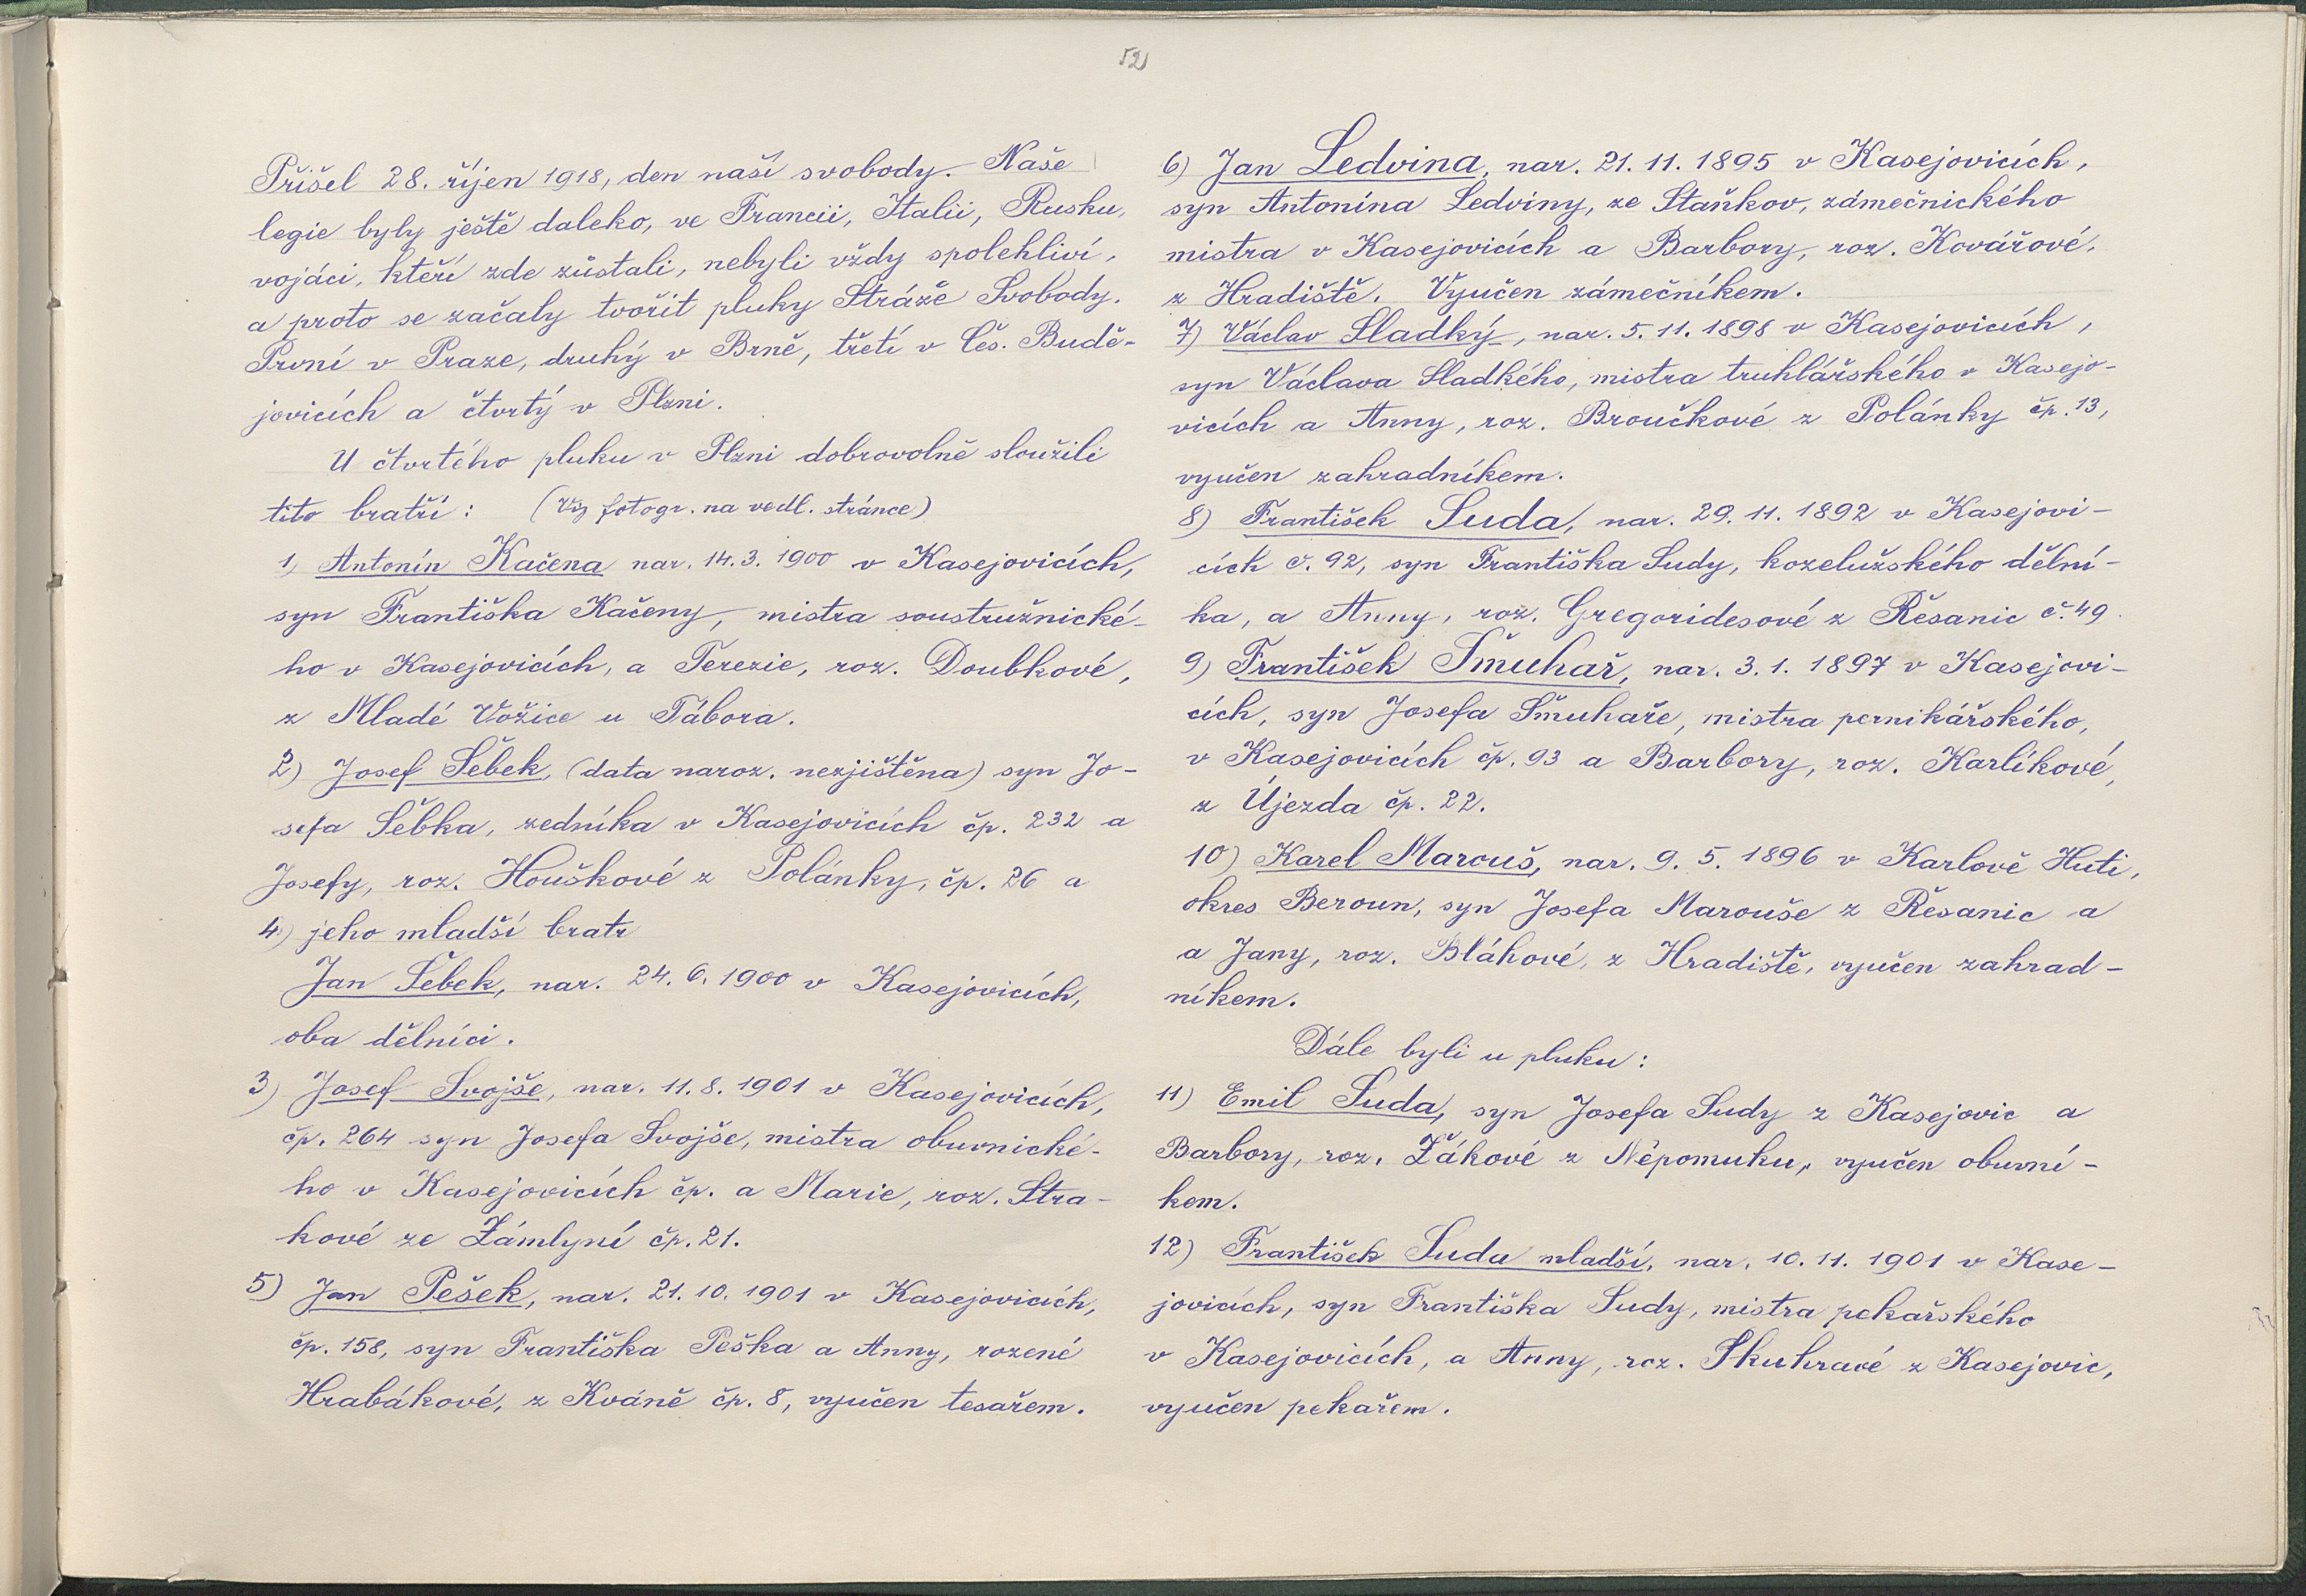 52
Přišel 28. říjen 1918, den naší svobody. Naše
legie byly ještě daleko, ve Francii, Italii, Rusku,
vojáci, kteří zde zůstali, nebyli vždy spolehliví,
a proto se začaly tvořit pluky Stráže Svobody.
První v Praze, druhý v Brně, třetí v Čes. Budě-
jovicích a čtvrtý v Plzni.
U čtvrtého pluku v Plzni dobrovolně sloužili
tito bratři: (Viz fotogr. na vedl. stránce)
1) Antonín Kačena nar. 14. 3. 1900 v Kasejovicích,
syn Františka Kačeny, mistra soustružnické-
ho v Kasejovicích, a Terezie, roz. Doubkové,
z Mladé Vožice u Tábora.
2) Josef Šebek, (data naroz. nezjištěna) syn Jo-
sefa Šebka, zedníka v Kasejovicích čp. 232 a
Josefy, roz. Houškové z Polánky, čp. 26 a
4) jeho mladší bratr
Jan Šebek, nar. 24. 6. 1900 v Kasejovicích,
oba dělníci.
3) Josef Svojše, nar. 11. 8. 1901 v Kasejovicích,
čp. 264 syn Josefa Svojše, mistra obuvnické-
ho v Kasejovicích čp. a Marie, roz. Stra-
kové ze Zámlyní čp. 21.
5) Jan Pešek, nar. 21. 10. 1901 v Kasejovicích,
čp. 158, syn Františka Peška a Anny, rozené
Hrabákové, z Kváně čp. 8, vyučen tesařem.
6) Jan Ledvina, nar. 21. 11. 1895 v Kasejovicích,
syn Antonína Ledviny, ze Staňkov, zámečnického
mistra v Kasejovicích a Barbory, roz. Kovářové,
z Hradiště. Vyučen zámečníkem.
7) Václav Sladký, nar. 5. 11. 1898 v Kasejovicích,
syn Václava Sladkého, mistra truhlářského v Kasejo-
vicích a Anny, roz. Broučkové z Polánky čp. 13,
vyučen zahradníkem.
8) František Suda, nar. 29. 11. 1892 v Kasejovi-
cích č. 92, syn Františka Sudy, koželužského dělní-
ka, a Anny, roz. Gregoridesové z Řesanic č. 49.
9) František Šmuhař, nar. 3. 1. 1897 v Kasejovi-
cích, syn Josefa Šmuhaře, mistra pernikářského,
v Kasejovicích čp. 93 a Barbory, roz. Karlíkové,
z Újezda čp. 22.
10) Karel Marouš, nar. 9. 5. 1896 v Karlově Huti,
okres Beroun, syn Josefa Marouše z Řesanic a
a Jany, roz. Bláhové, z Hradiště, vyučen zahrad-
níkem.
Dále byli u pluku:
11) Emil Suda, syn Josefa Sudy z Kasejovic a
Barbory, roz. Žákové z Nepomuku, vyučen obuvní-
kem.
12) František Suda mladší, nar. 10. 11. 1901 v Kase-
jovicích, syn Františka Sudy, mistra pekařského
v Kasejovicích, a Anny, roz. Skuhravé z Kasejovic,
vyučen pekařem.